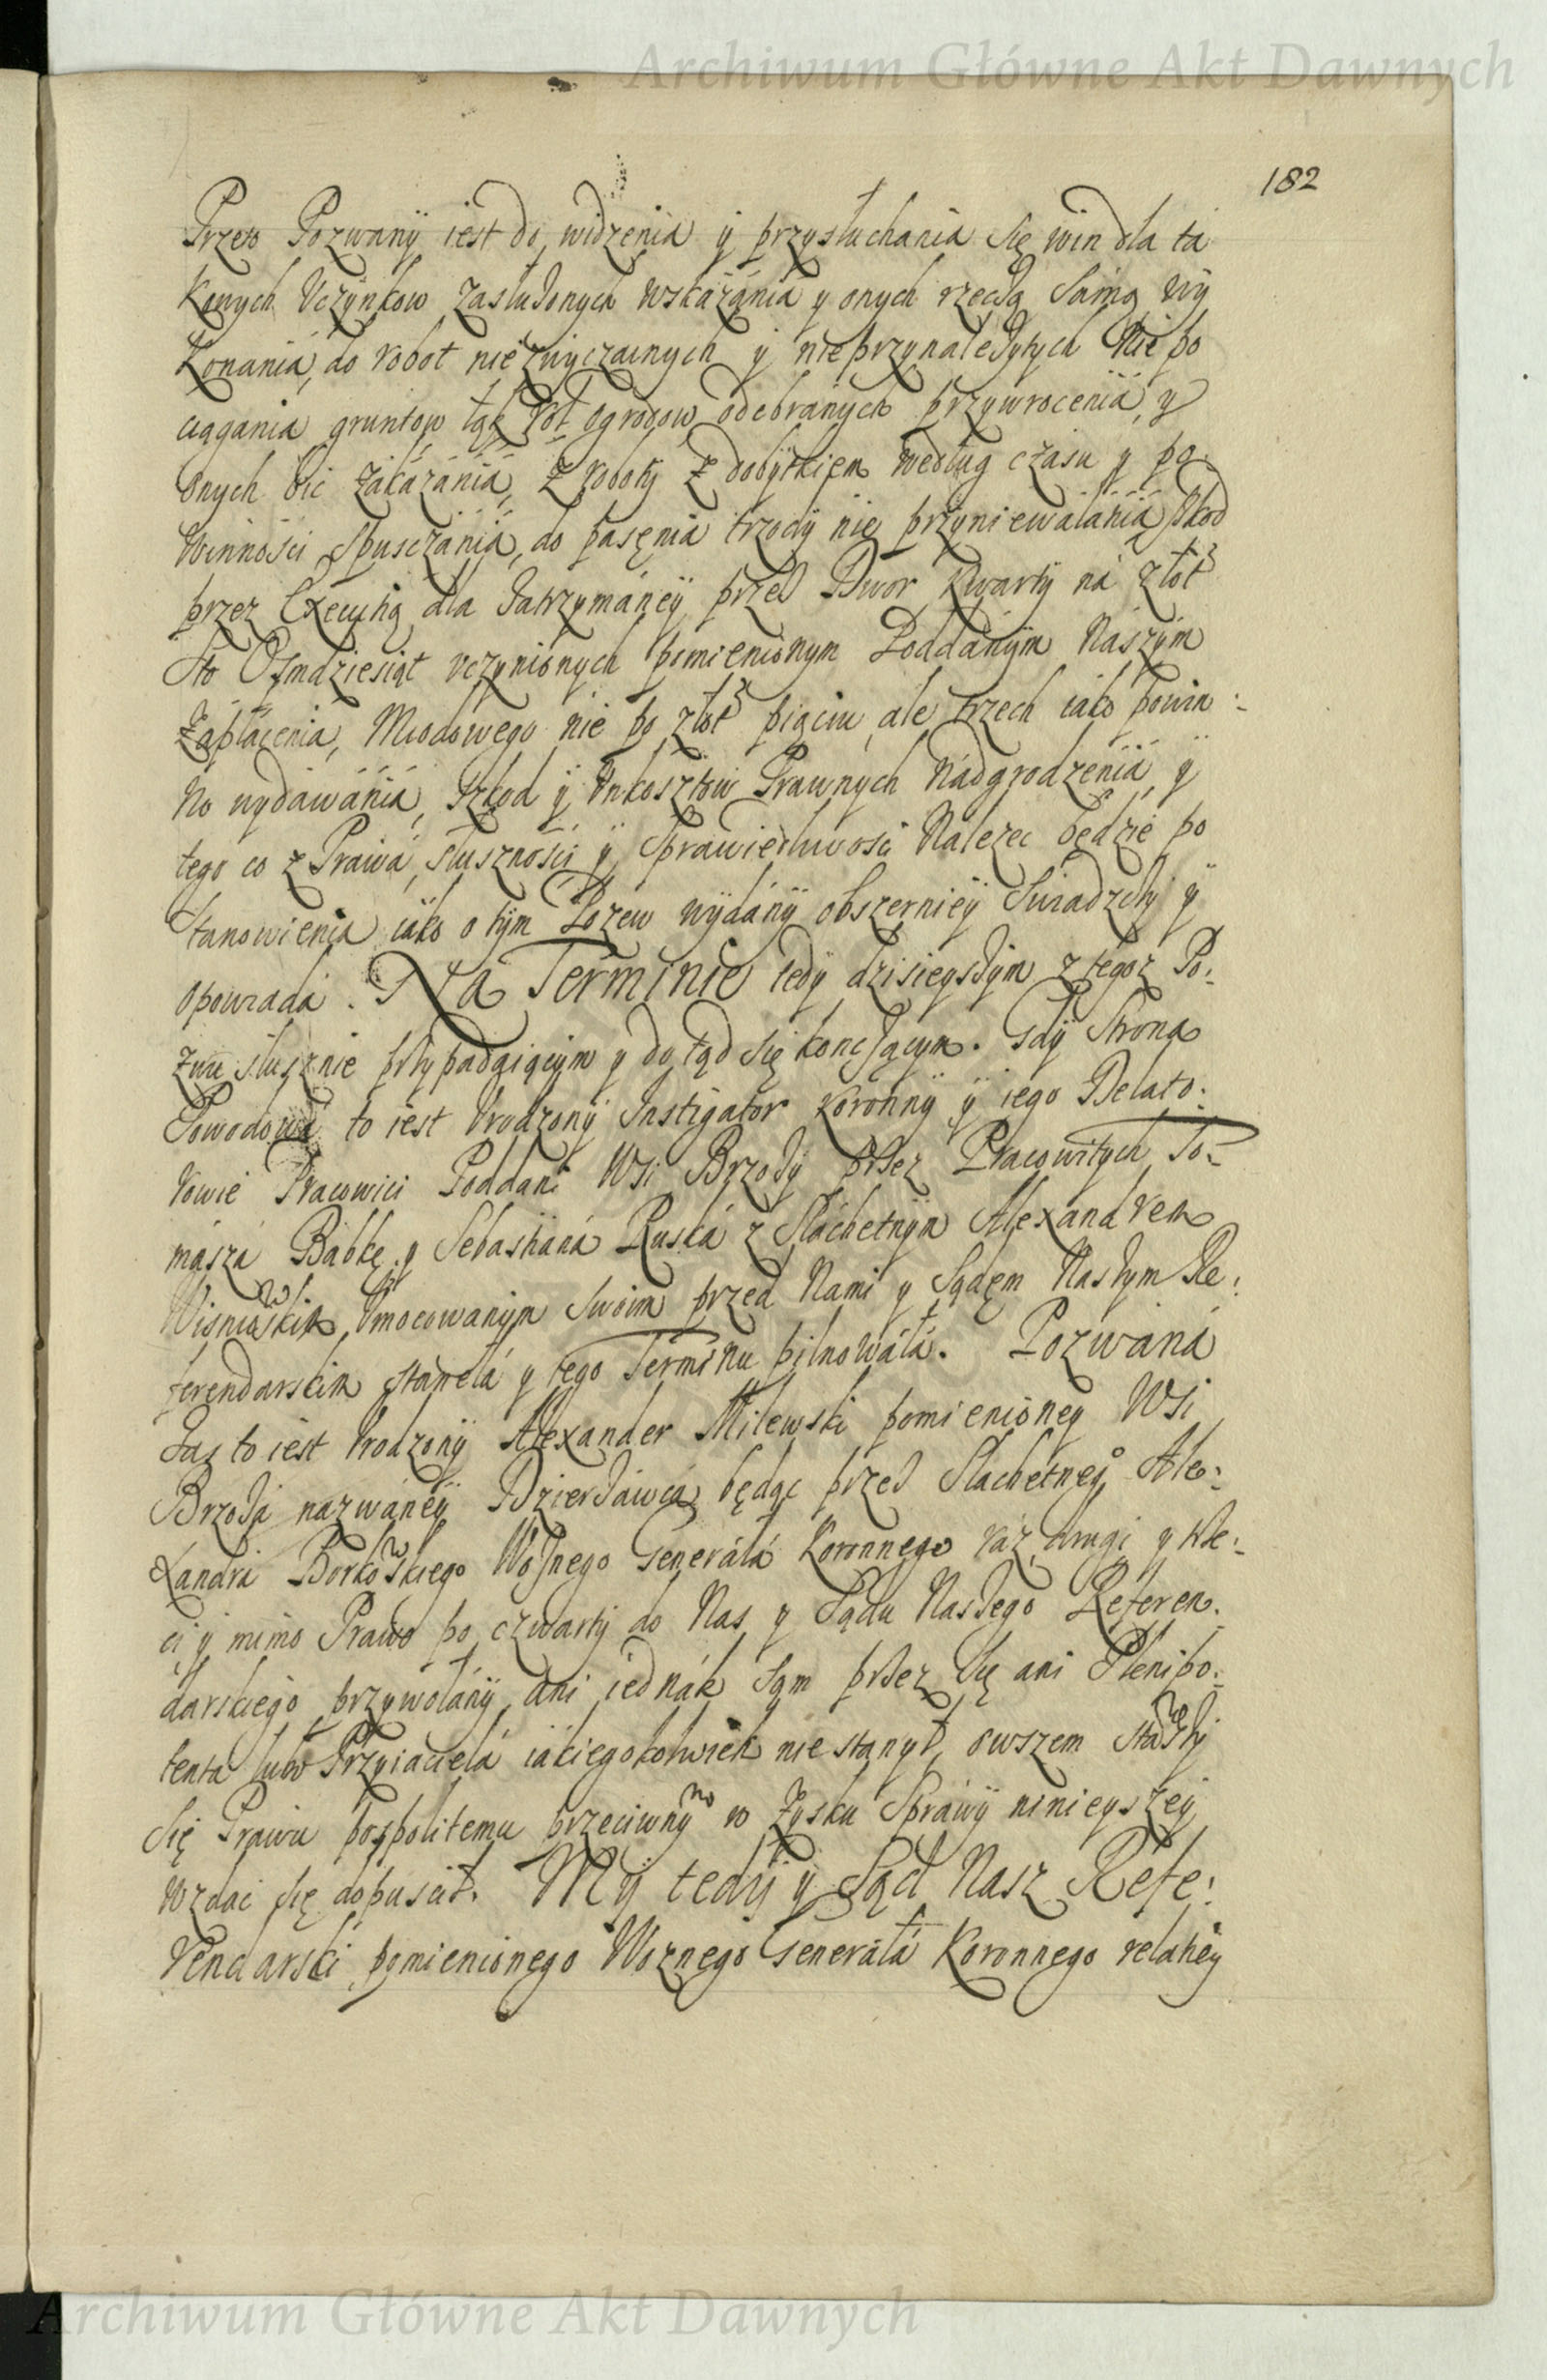 Archiwum Główne Akt Dawnych
182
Przeto Pozwany iest do widzenia y przysłuchania się win dla ta
kowych Vczynkow zasłużonych wskazánia y onych rzeczą sámą wy
konania, do robot niezwyczainych y nieprzynależytych nie po
ciągania gruntow łąk rol ogrodow odebranych przywrocenia, y
onych bic zákazániá, z roboty z dobytkiem według czasu y po
winności spusczániá, do pasęnia trzody nie przyniewalániá szkod
przez Exekutią dla zatrzymáney przez Dwor kwarty ná złot
Sto Osmdziesiąt vczynionych pomienionym Poddánym Nászym
Zápłácenia, Miodowego nie po złot piąciu ale trzech iako powin:
no wydáwániá, szkod y Vnkosztow Prawnych Nádgrodzeniá y
tego co z Prawá, słusznośći y Sprawiedliwośći Nalezec będzie po
stanowienia iáko o tym Pozew wydány obszerniey swiadzcły y
opowiada. Na Terminie tedy dzisieyszym z tegoż Po:
zwu słusznie przypadaiącym y do tąd się konczącym. Gdy Strona
Powodowa to iest Vrodzony Instigator Koronny y iego Delato:
rowie Pracowici Poddani Wsi Brzozy przez Pracowitych To:
mászá Babkę y Sebastyáná Ruská z Sláchetnym Alexandrem
Wisniowskim Vmocowanym swoim przed Nami y Sądęm Naszym Re:
ferendarskim stanęłá y tego Terminu pilnowáłá. Pozwáná
Zas to iest Vrodzony Alexander Milewski pomienioney Wsi
Brzozá názwáney Dzierżáwcá będąc przez Slachetnego Ale:
xandrá Borkowskiego Woznego Generáłá Koronnego raz drugi y trze:
ci y mimo Prawo po czwarty do Nas y Sądu Naszego Referen:
dárskiego przywołány, áni iednák sąm przez się ani Plenipo:
tenta lubo Przyiacielá iákiegokolwiek nie stanął, owszem stawszy
się Prawu pospolitemu przeciwny no w Zysku Spráwy ninieyszey
wzdać się dopuscił. My tedy y Sąd Nasz Refe:
rendarski pomienionego Woznego Generáłá Koronnego relatiey
Archiwum Główne Akt Dawnych